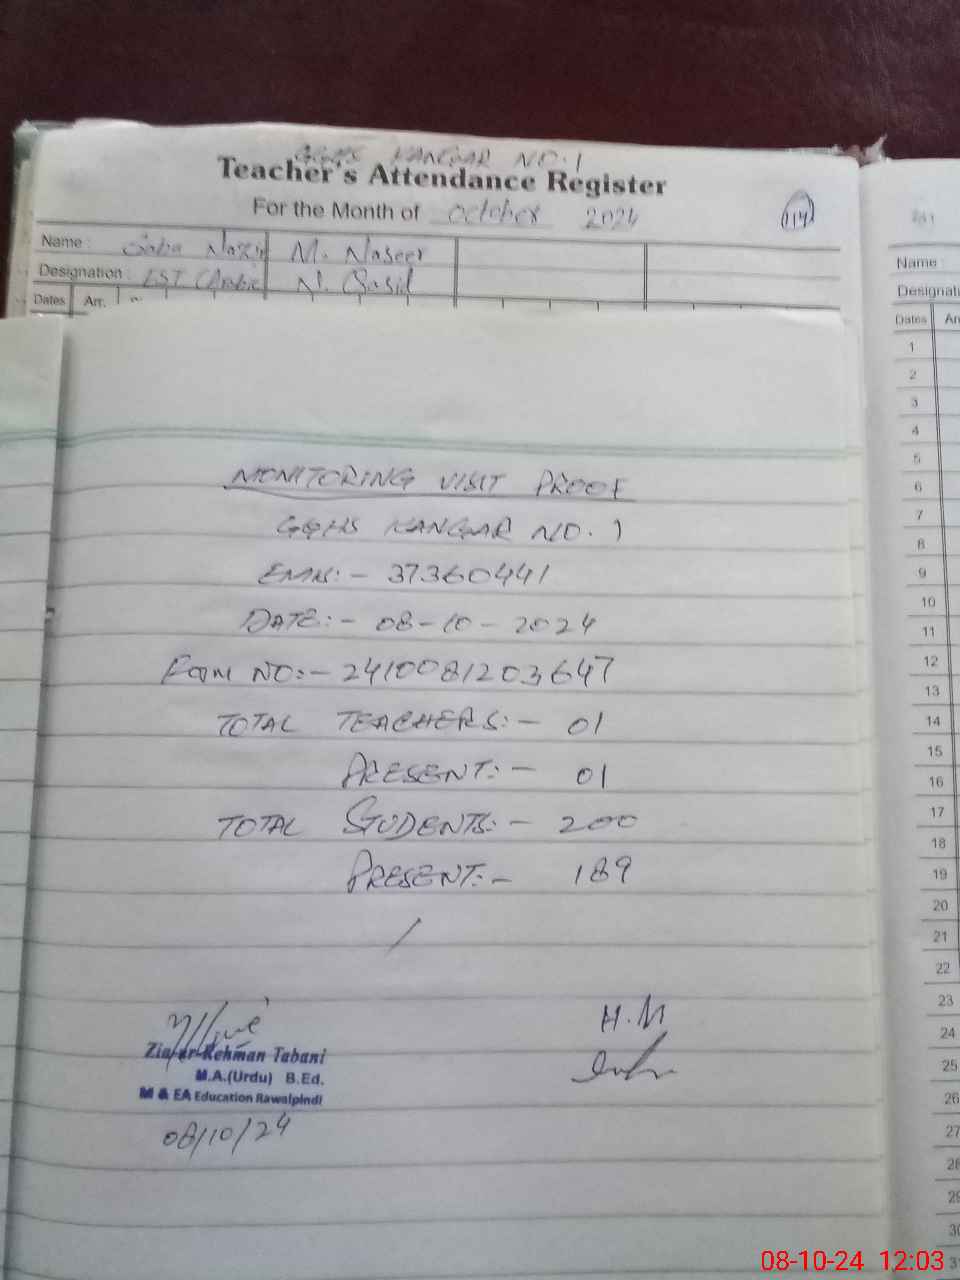 GGHS KANGAR NO.1
Teacher's Attendance Register
For the Month of October 2024
114
Name : Saba Nazir M. Naseer
Designation : EST (Arabic N. Qasid
Dates Arr.
MONITORING VISIT PROOF
GGHS KANGAR NO. 1
EMIS:- 37360441
DATE:- 08-10-2024
FORM NO:- 2410081203647
TOTAL TEACHERS:- 01
PRESENT:- 01
TOTAL STUDENTS:- 200
PRESENT:- 189
H.M
Zia-ur-Rehman Tabani
M.A.(Urdu) B.Ed.
M & EA Education Rawalpindi
08/10/24
Name :
Designati
Dates Ar
1
2
3
4
5
6
7
8
9
10
11
12
13
14
15
16
17
18
19
20
21
22
23
24
25
26
27
28
29
30
31
08-10-24 12:03